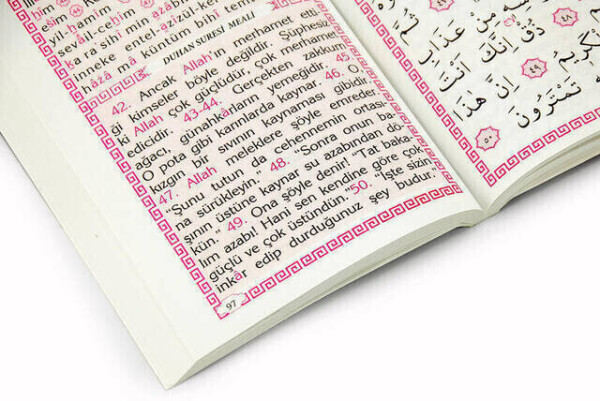 yıl-ham
sevâil-cehîm
ka ra'sihî min azabil-hamîm
inneke entel-azîzül-kerîm
hâzâ mâ küntüm bihî temterûn
DUHAN SURESİ MEALİ
42. Ancak Allah'ın merhamet etti-
ği kimseler böyle değildir. Şüphesiz
ki Allah çok güçlüdür, çok merhamet
edicidir. 43-44. Gerçekten zakkum
ağacı, günahkârların yemeğidir. 45.
O pota gibi karınlarda kaynar. 46. O,
kızgın bir sıvının kaynaması gibidir.
47. Allah meleklere şöyle emreder:
"Şunu tutun da cehennemin ortası-
na sürükleyin." 48. "Sonra onun ba-
şının üstüne kaynar su azabından dö-
kün." 49. Ona şöyle denir! "Tat baka-
lım azabı! Hani sen kendine göre çok
güçlü ve çok üstündün." 50. "İşte sizin
inkâr edip durduğunuz şey budur."
97
مِنْ عَذَابِ
ذُقْ إِنَّكَ أَنْتَ
إِنَّ هَذَا
تَمْتَرُونَ